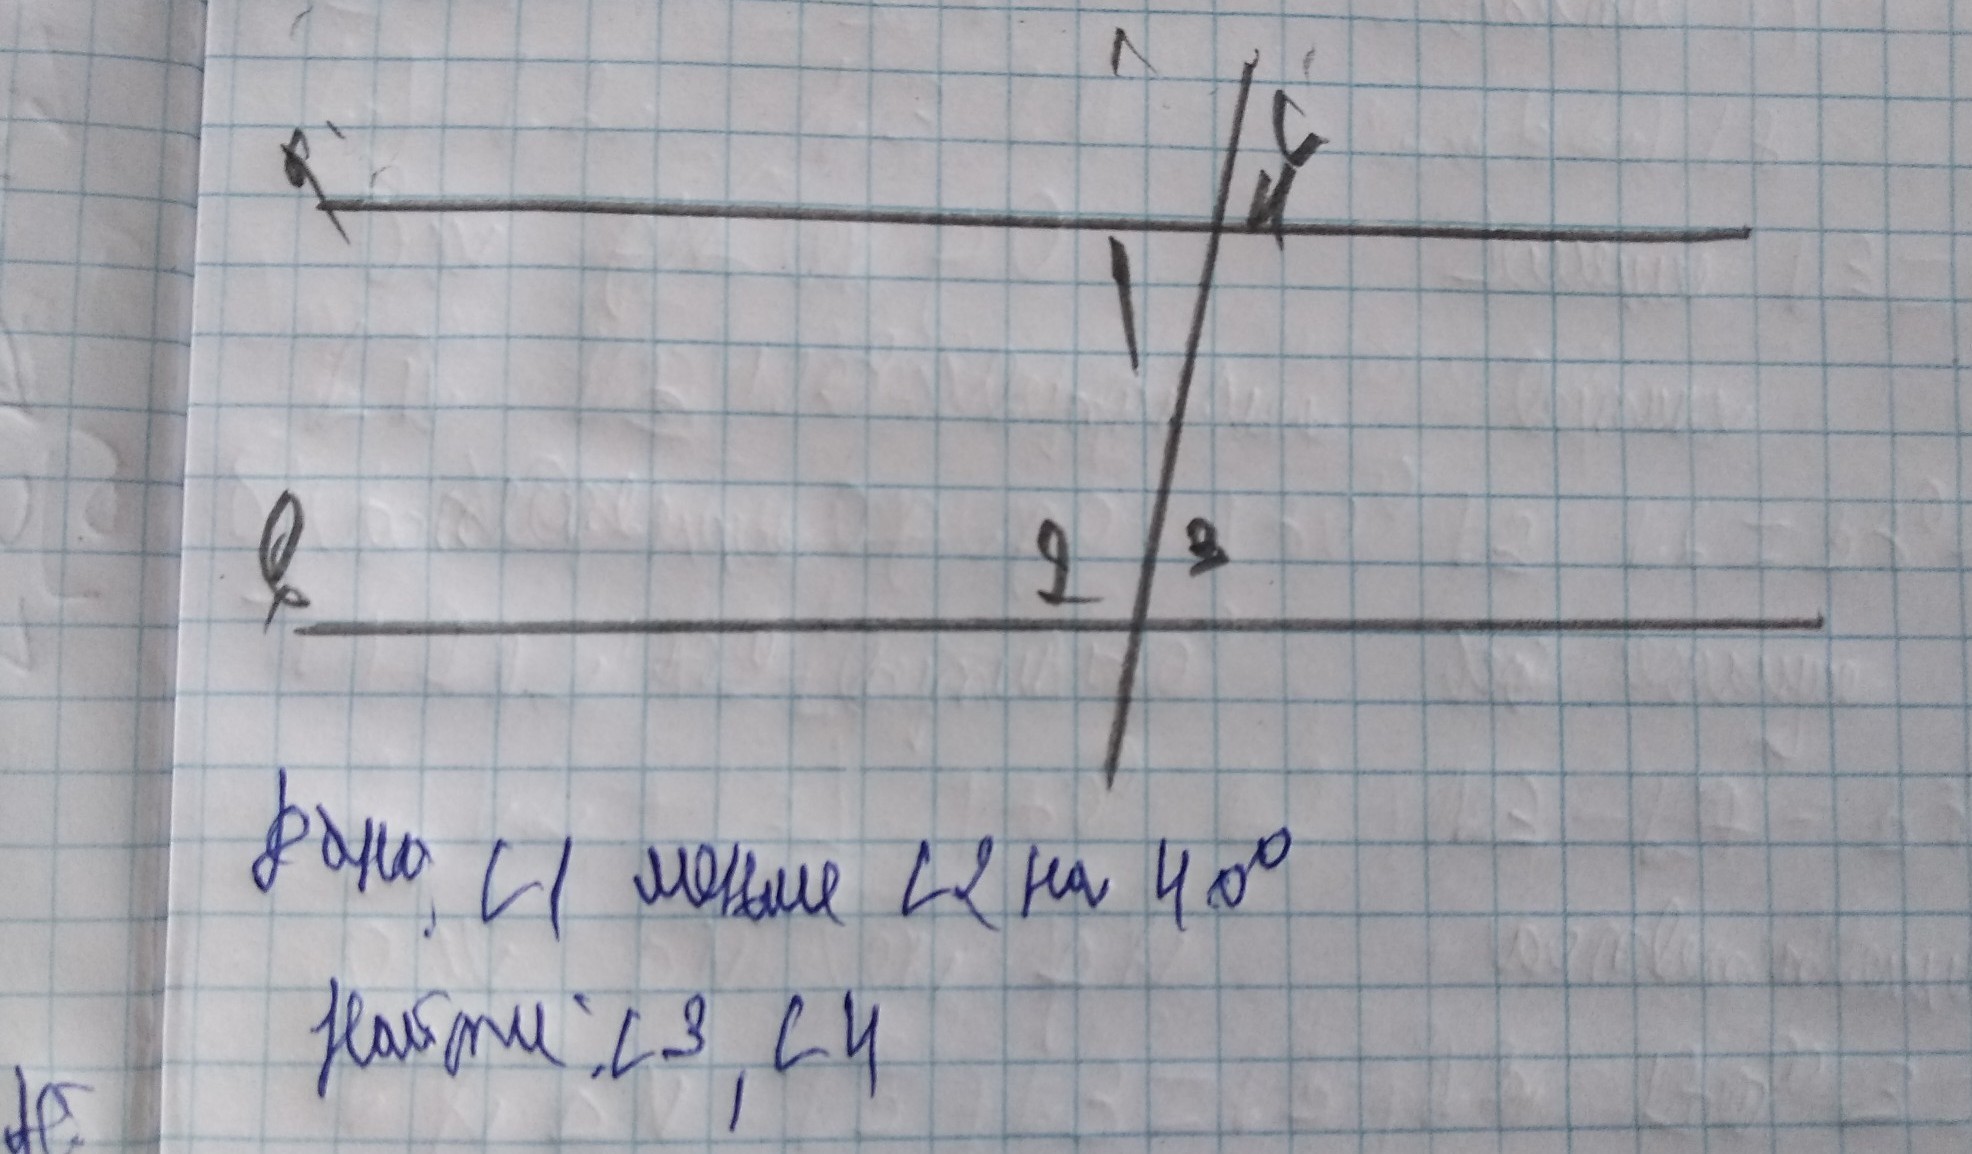 с
4
1
2 3
Дано: ∠1 меньше ∠2 на 40°
Найти: ∠3, ∠4